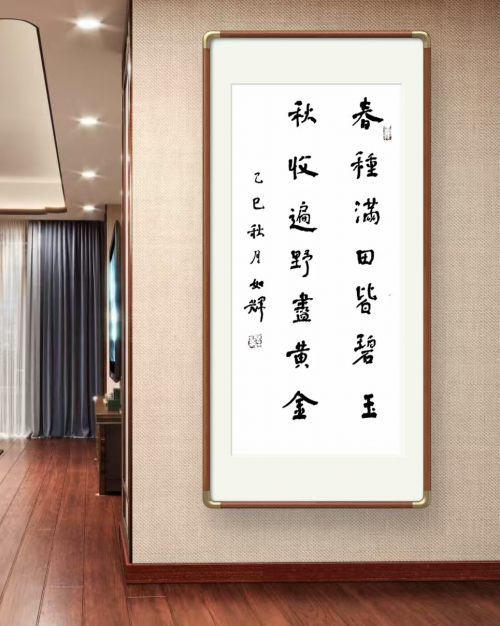 春種滿田皆碧玉
秋收遍野盡黄金
乙巳秋月如輝